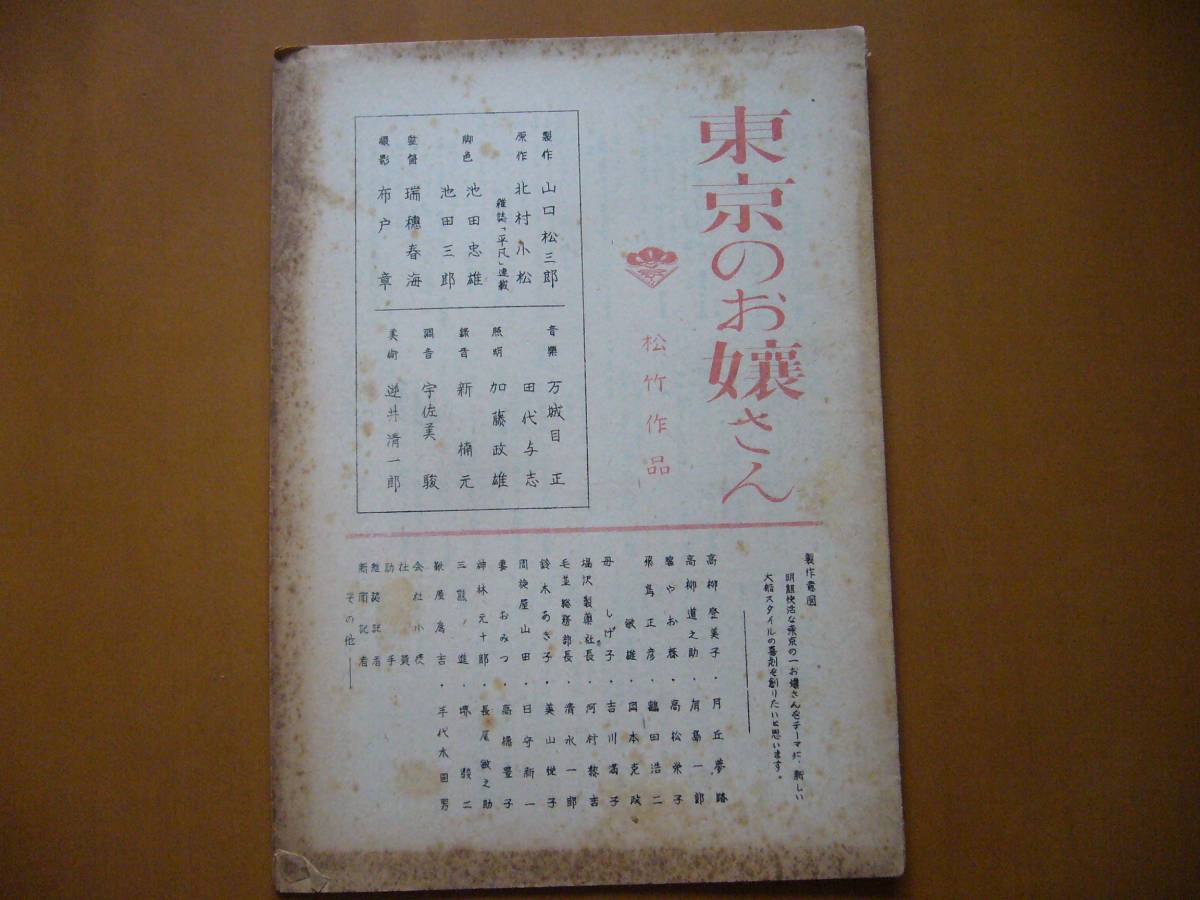 東京のお嬢さん
松竹作品
製作 山口松三郎
原作 北村小松
雑誌「平凡」連載
脚色 池田忠雄
池田三郎
監督 瑞穂春海
撮影 布戸章
音樂 万城目正
田代与志
照明 加藤政雄
録音 新楠元
調音 宇佐美駿
美術 逆井清一郎
製作意図
明朗快活な東京の一お嬢さんをテーマに、新しい
大船スタイルの喜劇を創りたいと思います。
高柳登美子・月丘夢路
高柳道之助・有島一郎
やお春・高松栄子
飛鳥正彦・鶴田浩二
敏雄・岡本克政
母しげ子・吉川満子
塩沢製薬社長・河村黎吉
毛並総務部長・清水一郎
鈴木あき子・美山悦子
周旋屋山田・日守新一
妻おみつ・高橋豊子
神林元十郎・長尾敏之助
三熊道・堺駿二
靴屋為吉・手代木国男
会社小使
社員
助手
雑誌記者
新聞記者
その他――